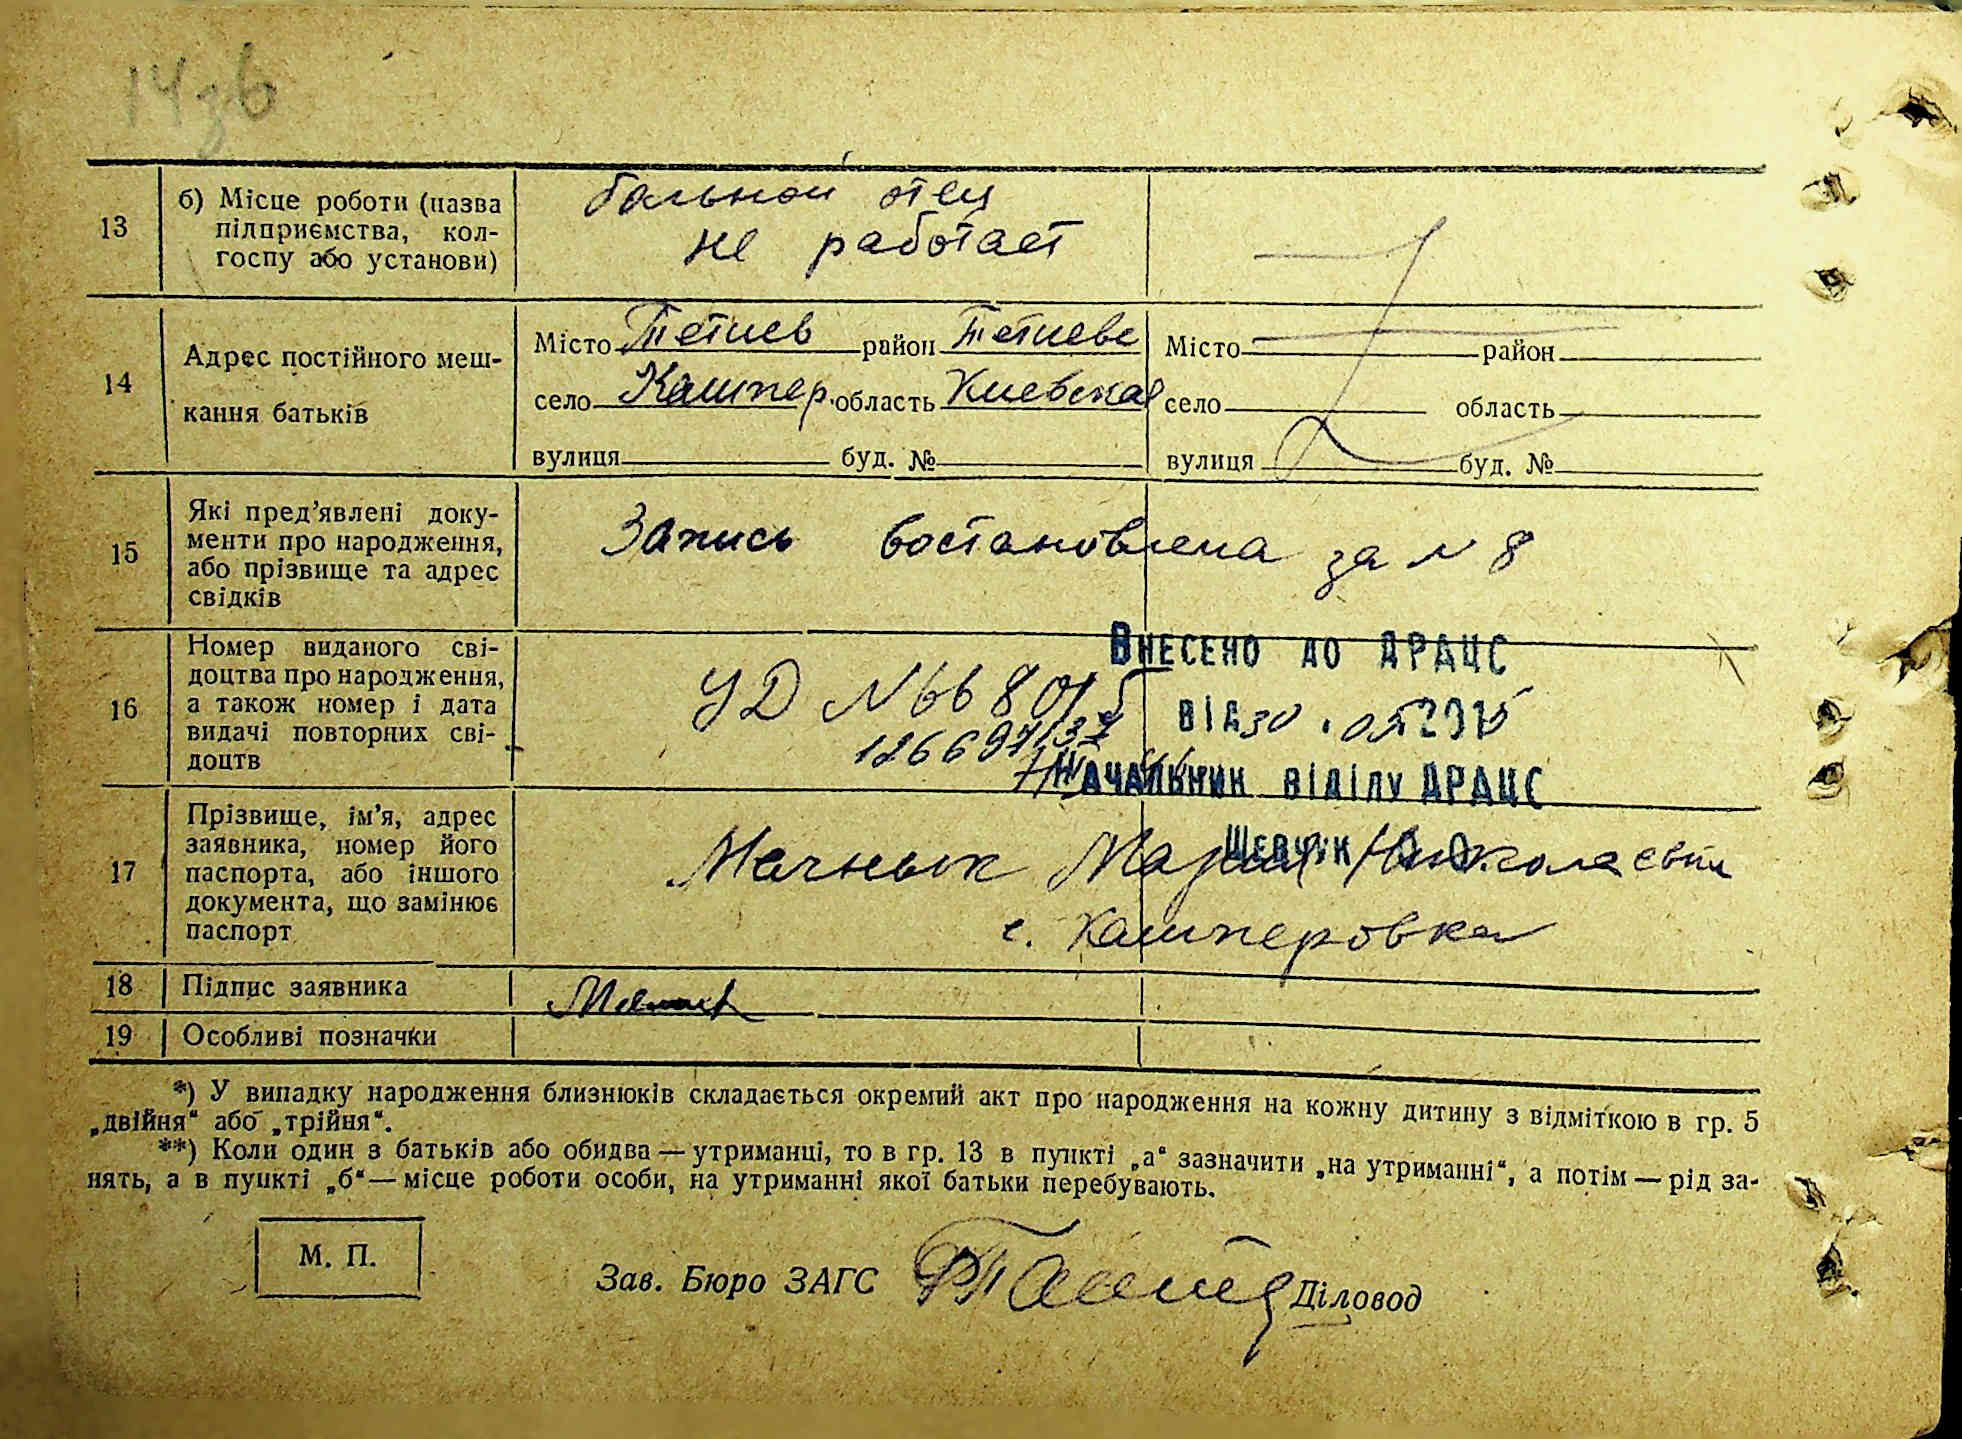 14зв
13
б) Місце роботи (назва
підприємства, кол-
госпу або установи)
больной отец
не работает
14
Адрес постійного меш-
кання батьків
Місто Тетиев район Тетиевс
село Кашпер. область Киевская
вулиця буд. №
Місто район
село область
вулиця буд. №
15
Які пред'явлені доку-
менти про народження,
або прізвище та адрес
свідків
Запись востановлена за N 8
16
Номер виданого сві-
доцтва про народження,
а також номер і дата
видачі повторних сві-
доцтв
УД N
Внесено до ДРАЦС
від 30.05.2015
Начальник відділу ДРАЦС
Шевчук О.О.
17
Прізвище, ім'я, адрес
заявника, номер його
паспорта, або іншого
документа, що замінює
паспорт
Мария Николаевн
с. Кашперовка
18
Підпис заявника
19
Особливі позначки
*) У випадку народження близнюків складається окремий акт про народження на кожну дитину з відміткою в гр. 5
„двійня“ або „трійня“.
**) Коли один з батьків або обидва — утриманці, то в гр. 13 в пункті „а“ зазначити „на утриманні“, а потім — рід за-
нять, а в пункті „б“ — місце роботи особи, на утриманні якої батьки перебувають.
М. П.
Зав. Бюро ЗАГС
Діловод